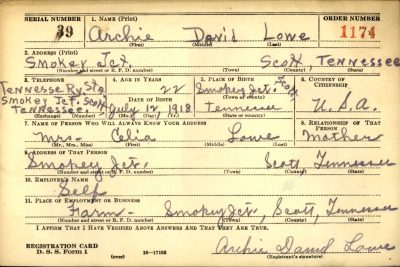 SERIAL NUMBER 1. NAME (Print) ORDER NUMBER
39 Archie David Lowe 1174
(First) (Middle) (Last)
2. ADDRESS (Print)
Smokey Jct. Scott, Tennessee
(Number and street or R. F. D. number) (Town) (County) (State)
3. TELEPHONE 4. AGE IN YEARS 5. PLACE OF BIRTH 6. COUNTRY OF CITIZENSHIP
Tennessee Ry. Sta 22 Smokey Jct. Scott
Smokey Jct. Scott DATE OF BIRTH (Town or county)
Tennessee. July 17, 1918 Tennessee U.S.A.
(Exchange) (Number) (Mo.) (Day) (Yr.) (State or country)
7. NAME OF PERSON WHO WILL ALWAYS KNOW YOUR ADDRESS 8. RELATIONSHIP OF THAT PERSON
Mrs. Celia Lowe Mother
(Mr., Mrs., Miss) (First) (Middle) (Last)
9. ADDRESS OF THAT PERSON
Smokey Jct. Scott, Tennessee
(Number and street or R. F. D. number) (Town) (County) (State)
10. EMPLOYER'S NAME
Self
11. PLACE OF EMPLOYMENT OR BUSINESS
Farm - Smokey Jct, Scott, Tennessee
(Number and street or R. F. D. number) (Town) (County) (State)
I AFFIRM THAT I HAVE VERIFIED ABOVE ANSWERS AND THAT THEY ARE TRUE.
REGISTRATION CARD
D. S. S. Form 1 (over) 16-17105 Archie David Lowe
(Registrant's signature)